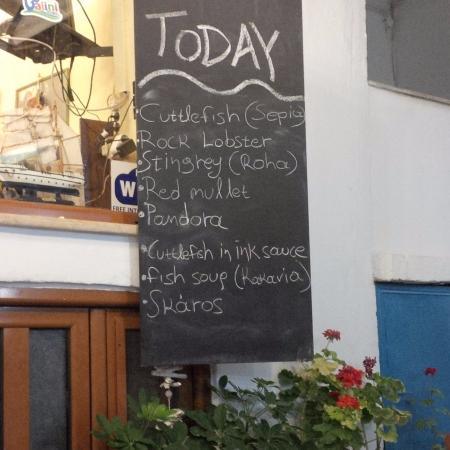 Galini
TODAY
Cuttlefish (Sepia)
Rock Lobster
Stinghey (Roha)
Red mullet
Pandora
Cuttlefsh in ink sauce
fish soup (Kakavia)
Skáros
W
FREE INT